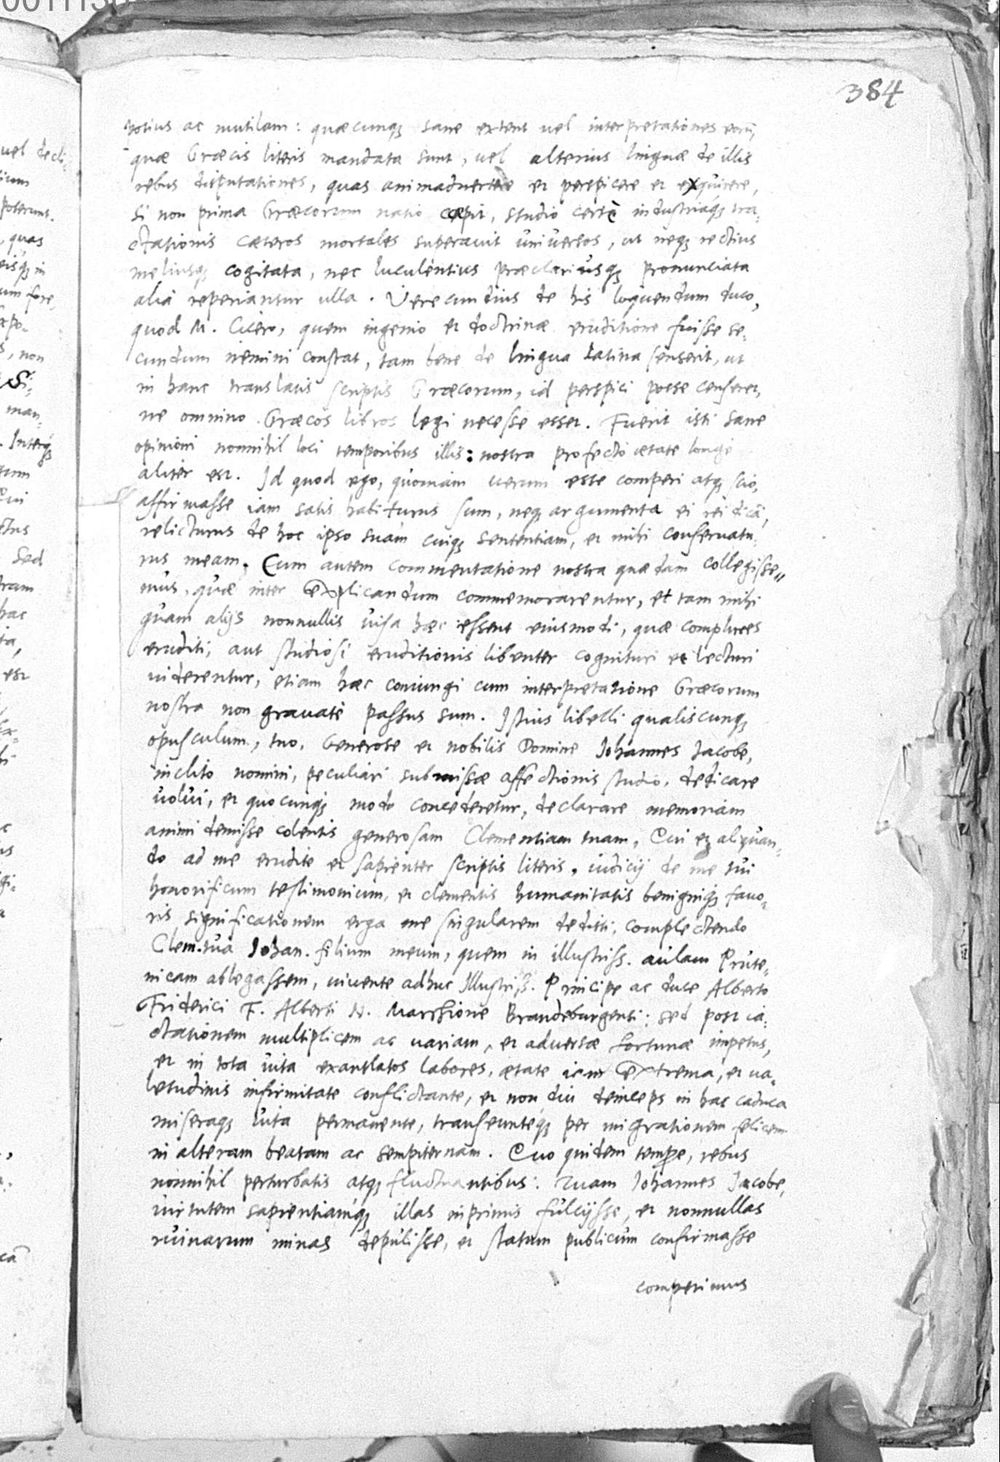 384
potius ac mutilam: quæcunqȝ sane extent uel interpretationes eorū,
quæ Græcis literis mandata sunt, uel alterius linguæ de illis
rebus disputationes, quas animaduertere et perspicere et exquirere,
si non prima Græcorum natio cœpit, studio certè industriaqȝ tra-
ctationis cæteros mortales superauit vniuersos, ut neqȝ rectius
meliusqȝ cogitata, nec luculentius præclariusqȝ pronunciata
alia reperiantur ulla. Verecundius de his loquendum duco,
quod M. Cicero, quem ingenio et doctrinæ eruditione fuisse se-
cundum nemini constat, tam bene de lingua Latina senserit, ut
in hanc translatis scriptis Græcorum, id perspici posse censeret,
ne omnino Græcos libros legi necesse esset. Fuerit isti sane
opinioni nonnihil loci temporibus illis: nostra profecto ætate longè
aliter est. Id quod ego, quoniam uerum esse comperi atqȝ scio,
affirmasse iam satis habiturus sum, neqȝ argumenta ei rei dicā,
relicturus de hoc ipso suam cuiqȝ sententiam, et mihi conseruatu-
rus meam. Cum autem commentatione nostra quædam collegisse-
mus, quæ inter explicandum commemorarentur, et tam mihi
quam alijs nonnullis uisa hæc essent eiusmodi, quæ complures
eruditi, aut studiosi eruditionis libenter cognituri et lecturi
uiderentur, etiam hæc coniungi cum interpretatione Græcorum
nostra non grauatè passus sum. Istius libelli qualiscunqȝ
opusculum, tuo, Generose et nobilis Domine Johannes Jacobe,
inclito nomini, peculiari submissæ affectionis studio, dedicare
uolui, et quocunqȝ modo concederetur, declarare memoriam
animi demisse colentis generosam Clementiam tuam, Cui et aliquan-
do ad me erudite et sapienter scriptis literis, iudicij de me tui
honorificum testimonium, et clementis humanitatis benigniqȝ fauo-
ris significationem erga me singularem dedisti, complectendo
Clem. tua Johan. filium meum, quem in illustriss. aulam Prute-
nicam ablegassem, uiuente adhuc Illustriß. Principe ac duce Alberto
Friderici F. Alberti N. Marchione Brandeburgensi: sed post ia-
ctationem multiplicem ac uariam, et aduersæ fortunæ impetus,
et in tota uita exantlatos labores, ætate iam extrema, et ua-
letudinis infirmitate conflictante, et non diu deinceps in hac caduca
miseraqȝ uita permanente, transeunteqȝ per migrationem felicem
in alteram beatam ac sempiternam. Quo quidem tempore, rebus
nonnihil perturbatis atqȝ fluctuantibus: tuam Johannes Jacobe,
uirtutem sapientiamqȝ illas inprimis fulsijsse, et nonnullas
ruinarum minas depulisse, et statum publicum confirmasse
comperimus